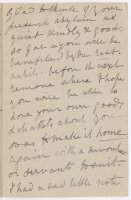 glad to think of your
present asylum as
most kindly & good
So far as you will be
benefited by the rest,
while before the next
remove where I hope
you will be able to
have your own goods
& chattels about you
so as to make it home
again with a
or servants to suit.
I had a sad little note